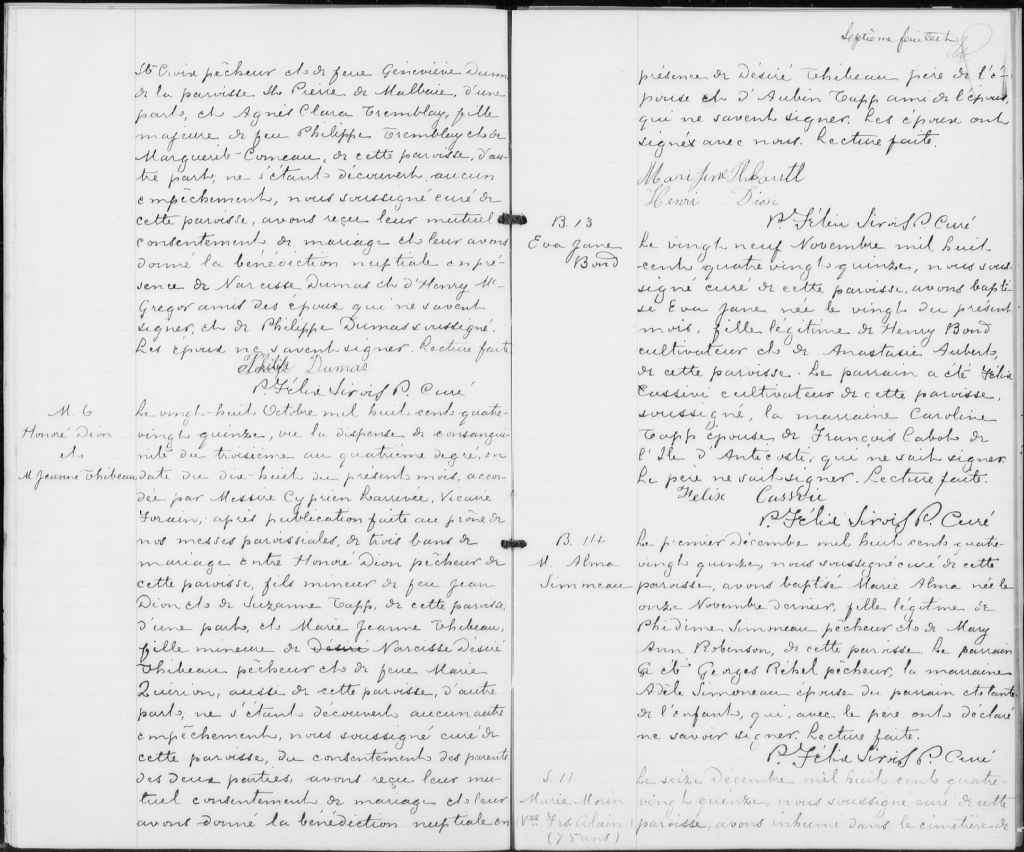 Ste Croix pêcheur et de feue Géneviève Dumas
de la paroisse St Pierre de Malbaie, d'une
part, et Agnès Clara Tremblay, fille
majeure de feu Philippe Tremblay et de
Marguerite Comeau, de cette paroisse, d'au-
tre part, ne s'étant découvert aucun
empêchement, nous soussigné curé de
cette paroisse, avons reçu leur mutuel
consentement de mariage et leur avons
donné la bénédiction nuptiale en pré-
sence de Narcisse Dumas et d'Henry Mc-
Gregor amis des époux qui ne savent
signer, et de Philippe Dumas soussigné.
Les époux ne savent signer. Lecture faite
Philip Dumas
P. Félix Sirois P. Curé
M. 6
Honoré Dion
et
M Jeanne Thibeau
Le vingt-huit Octobre mil huit cent quatre-
vingt quinze, vu la dispense de consangui-
nité du troisième au quatrième degré, en
date du dix-huit du présent mois, accor-
dée par Messire Cyprien Larrivée, Vicaire
Forain, après publication faite au prône de
nos messes paroissiales, de trois bans de
mariage entre Honoré Dion pêcheur de
cette paroisse, fils mineur de feu Jean
Dion et de Suzanne Tapp, de cette paroisse,
d'une part, et Marie Jeanne Thibeau,
fille mineure de Désiré Narcisse Désiré
Thibeau pêcheur et de feue Marie
Quirion, aussi de cette paroisse, d'autre
part, ne s'étant découvert aucun autre
empêchement, nous soussigné curé de
cette paroisse, du consentement des parents
des deux parties, avons reçu leur mu-
tuel consentement de mariage et leur
avons donné la bénédiction nuptiale en
Septième feuillet
présence de Désiré Thibeau père de l'é-
pouse et d'Aubin Tapp ami de l'époux,
qui ne savent signer. Les époux ont
signés avec nous. Lecture faite.
Henri Dion
P. Félix Sirois P. Curé
B. 13
Eva Jane
Bond
Le vingt neuf Novembre mil huit
cent quatre vingt quinze, nous sous-
signé curé de cette paroisse, avons bapti-
sé Eva Jane née le vingt du présent
mois, fille légitime de Henry Bond
cultivateur et de Anastasie Aubert,
de cette paroisse. Le parrain a été Félix
Cassivi cultivateur de cette paroisse,
soussigné, la marraine Caroline
Tapp épouse de François Cabot de
l'Ile d'Anticosti, qui ne sait signer.
Le père ne sait signer. Lecture faite.
Felix Cassivi
P. Félix Sirois P. Curé
B. 14
M. Alma
Simmeau
Le premier Décembre mil huit cent quatre-
vingt quinze, nous soussigné curé de cette
paroisse, avons baptisé Marie Alma née le
onze Novembre dernier, fille légitime de
Phidime Simmeau pêcheur et de Mary
Ann Robinson, de cette paroisse. Le parrain
a été Georges Réhel pêcheur, la marraine
Adèle Simoneau épouse du parrain et tante
de l'enfant, qui, avec le père ont déclaré
ne savoir signer. Lecture faite.
P. Félix Sirois P. Curé
S. 11
Marie Morin
(Vve Frs Alain)
(75 ans)
Le seize Décembre mil huit cent quatre-
vingt quinze, nous soussigné curé de cette
paroisse, avons inhumé dans le cimetière de